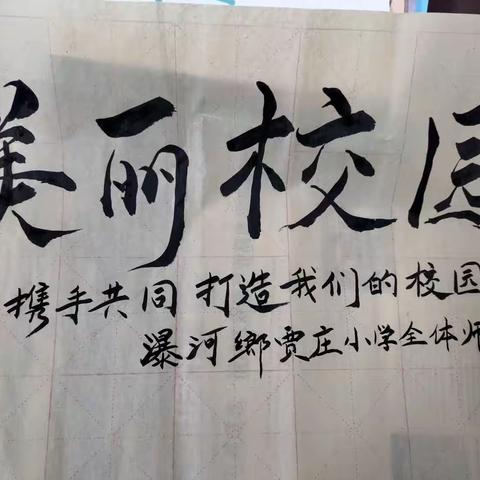 美丽校园
携手共同打造我们的校园
瀑河鄉贾庄小学全体师